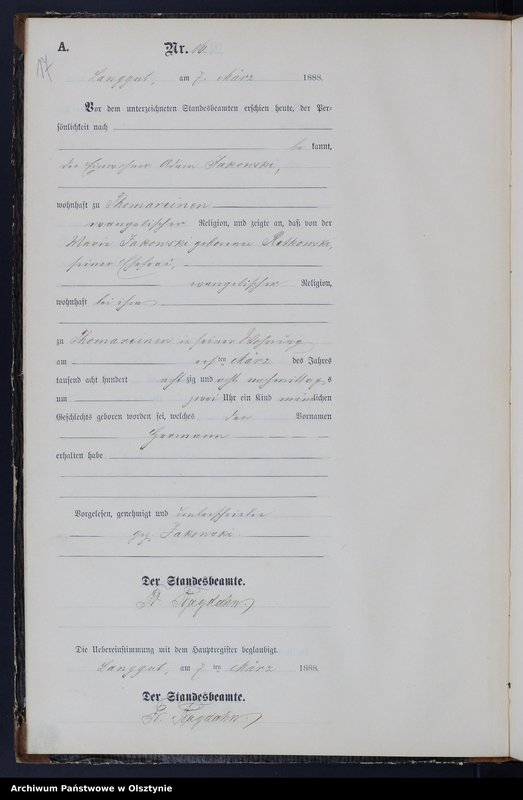 A.
Nr. 16.
17
Langgut, am 7. März 1888.
Vor dem unterzeichneten Standesbeamten erschien heute, der Per-
sönlichkeit nach
be kannt,
der Einwohner Adam Jakowski,
wohnhaft zu Thomareinen
evangelischer Religion, und zeigte an, daß von der
Marie Jakowski geborenen
seiner Ehefrau,
evangelischer Religion,
wohnhaft bei ihm
zu Thomareinen in seiner Wohnung
am ten März des Jahres
tausend acht hundert acht zig und acht nachmittags
um zwei Uhr ein Kind männlichen
Geschlechts geboren worden sei, welches den Vornamen
Hermann
erhalten habe
Vorgelesen, genehmigt und unterschrieben
gez. Jakowski
Der Standesbeamte.
Die Uebereinstimmung mit dem Hauptregister beglaubigt.
Langgut, am 7 ten März 1888.
Der Standesbeamte.
Archiwum Państwowe w Olsztynie